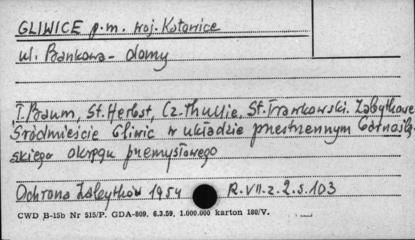 GLIWICE p.m. woj. Katowice
ul. Bankowa - domy
T. Baum, St. Herbst, Cz. Thullie, St. Frankowski. Zabytkowe
Śródmieście Gliwic w układzie przestrzennym Górnoślą-
skiego okręgu przemysłowego
Ochrona Zabytków 1954 R. VII. z. 2. s. 103
CWD B-15b Nr 515/P. GDA-809. 6.3.59. 1.000.000 karton 180/V.